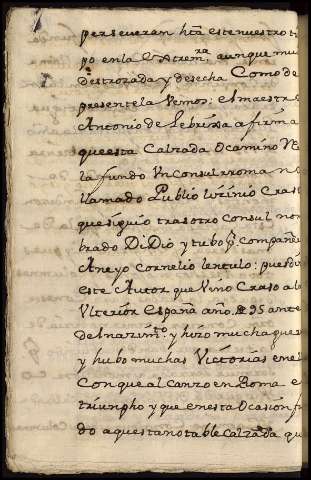 perseveran hta este nuestro ti
po en la Estremra, aunque mui
destrozada y desecha Como de
presente la Vemos; el maestro
Antonio de Lebrixa afirma
que esta Calzada o camino Re
la fundo Vn Consul rromano
llamado Publio licinio Craso
que siguio tras otro Consul nom
brado Didio y tubo pr compañe
Aneyo Cornelio lentulo: pues dize
este Autor que Vino Craso a la
Vlterior España año 95 ante
del nazimto y hizo mucha guer
y hubo muchas Victorias en el
Con que alcanzo en Roma e
triumpho y que en esta Ocasion fu
do aquesta notable Calzada qu